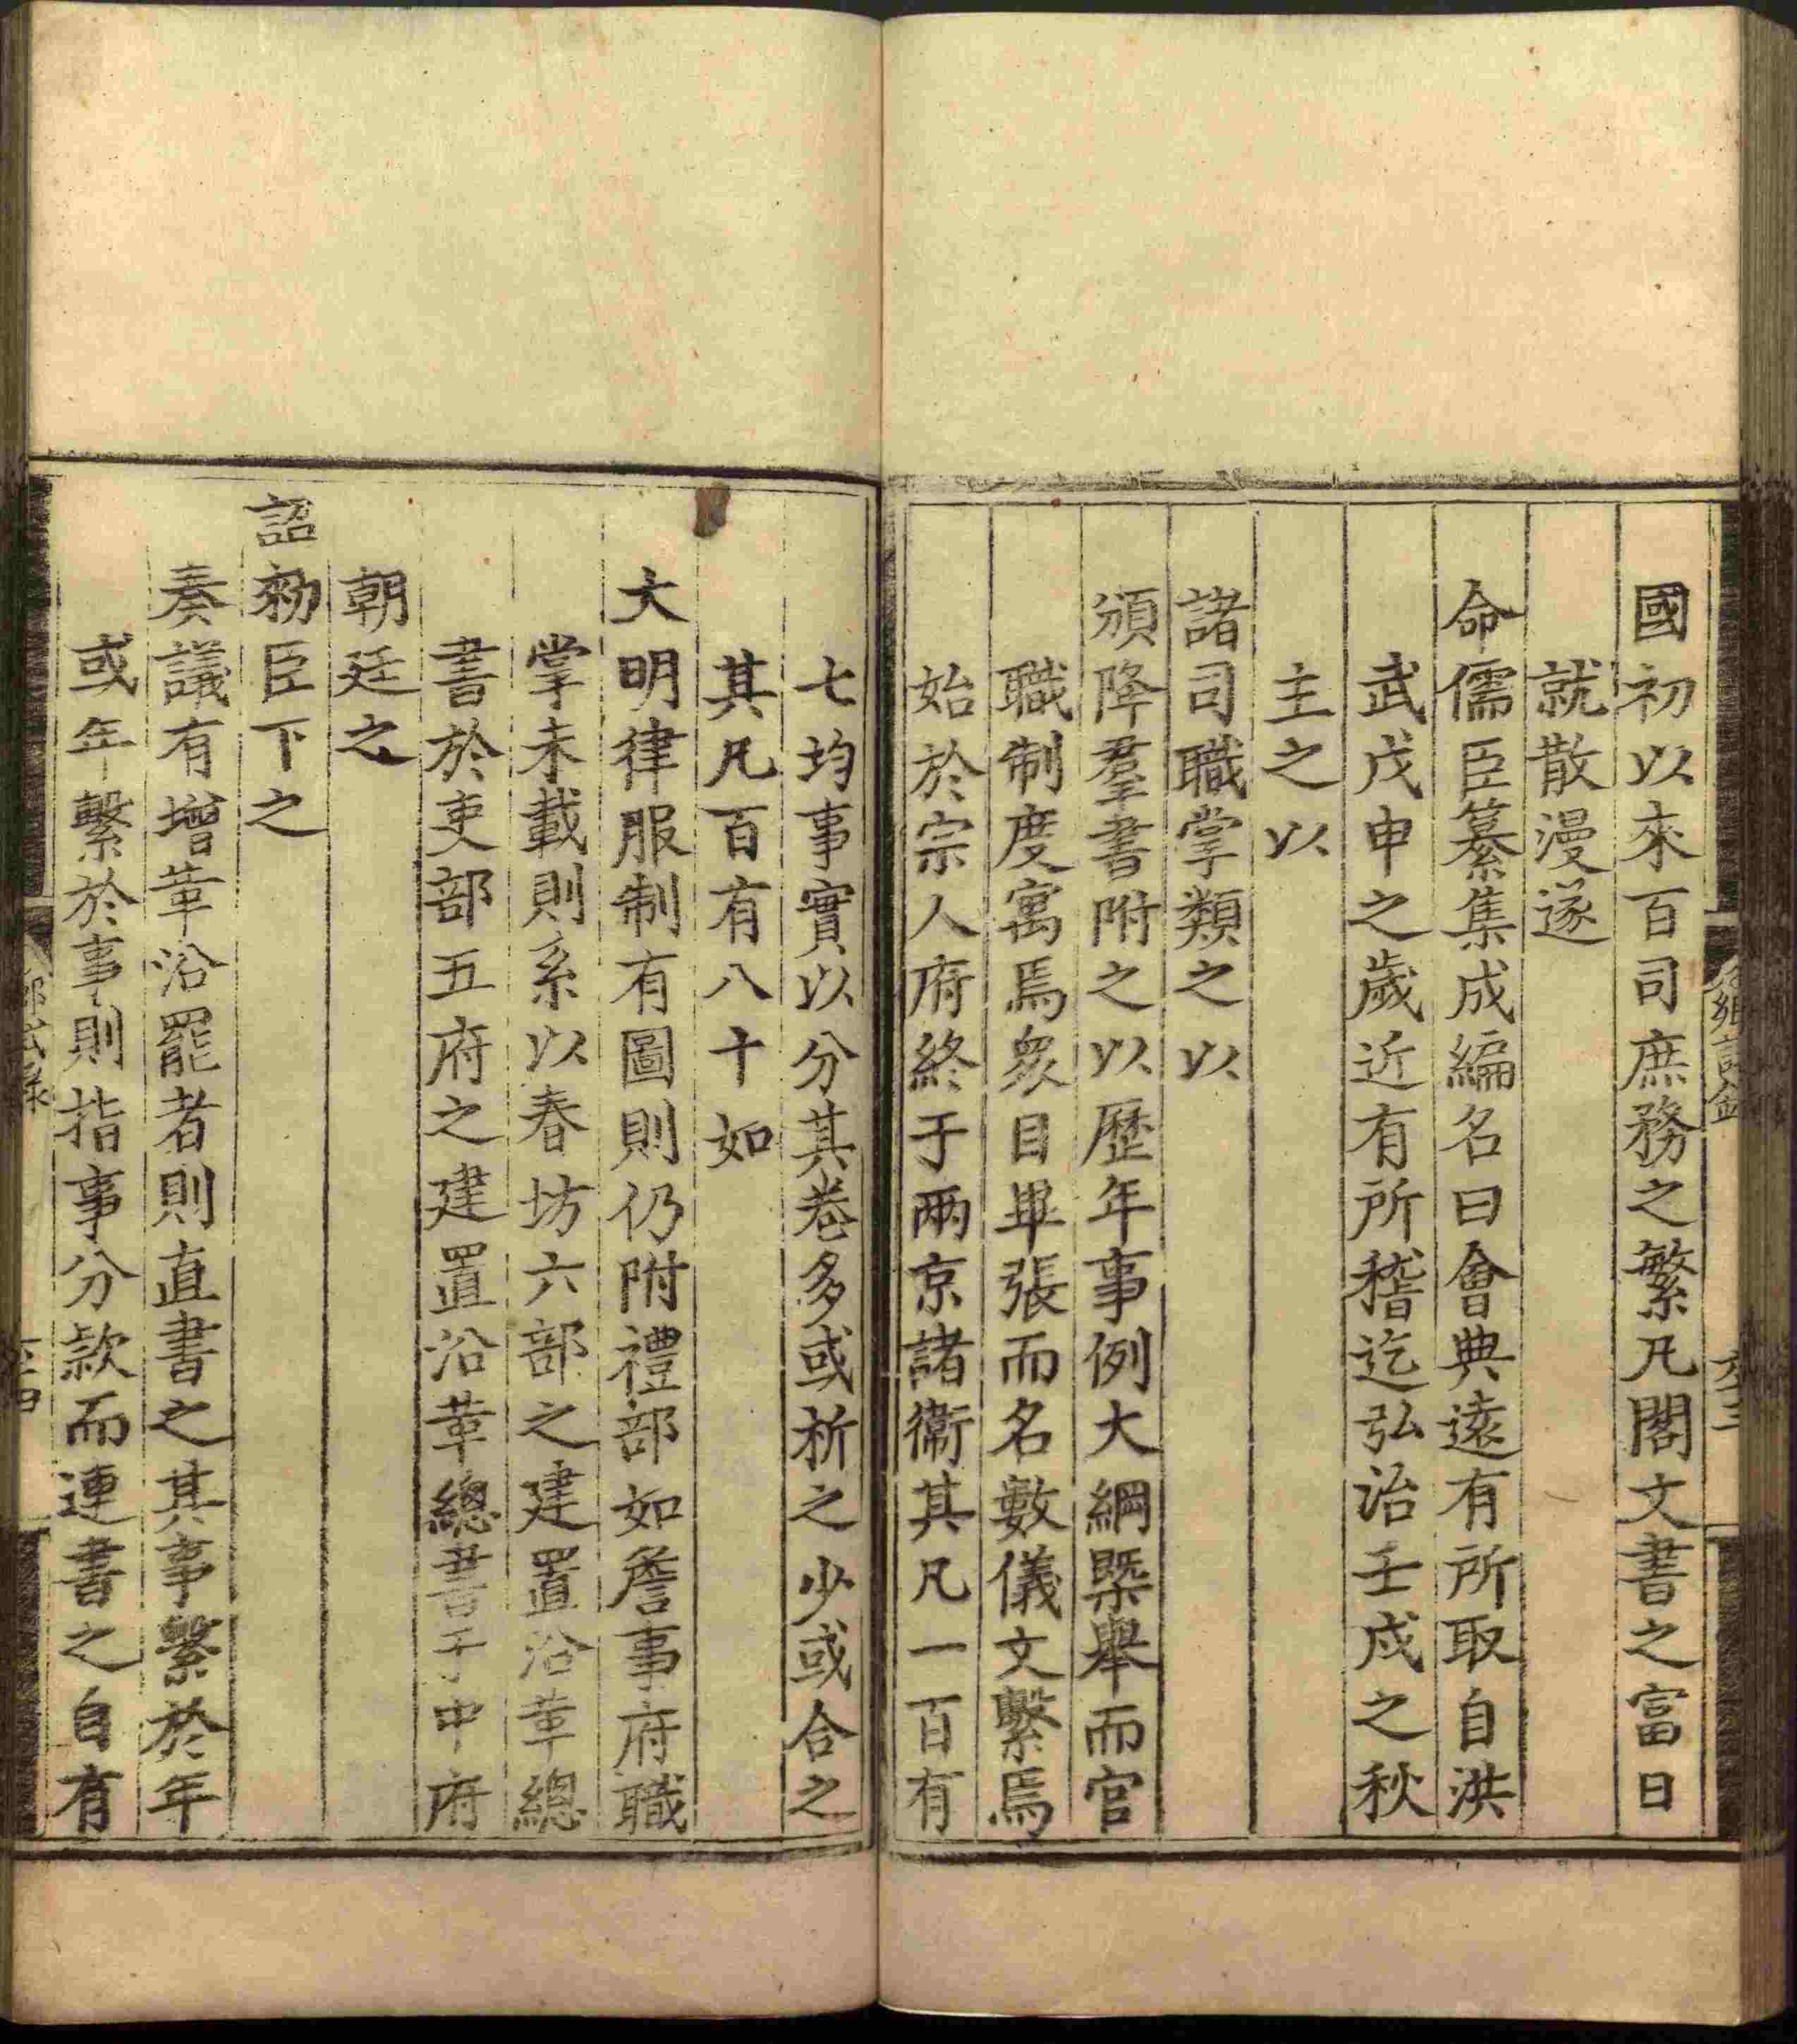 國初以來百司庶務之繁凡閣文書之富日
就散漫遂
命儒臣纂集成編名曰會典遠有所取自洪
武戊申之歲近有所稽迄弘治壬戌之秋
主之以
諸司職掌類之以
頒降羣書附之以歷年事例大綱槩舉而官
職制度寓焉衆目畢張而名數儀文繫焉
始於宗人府終于兩京諸衞其凡一百有
七均事實以分其卷多或析之少或合之
其凡百有八十如
大明律服制有圖則仍附禮部如詹事府職
掌未載則系以春坊六部之建置沿革總
書於吏部五府之建置沿革總書于中府
朝廷之
詔勑臣下之
奏議有增革沿罷者則直書之其事繫於年
或年繫於事則指事分款而連書之自有